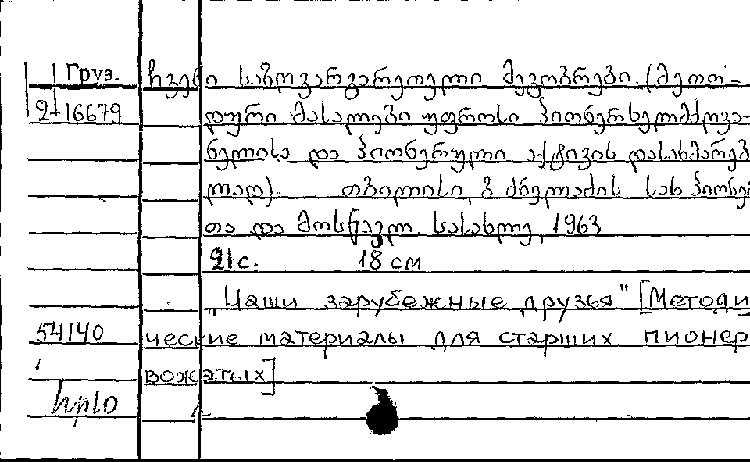 Груз. ჩვენი საზღვარგარეთელი მეგობრები. (მეთო-
2-16679 დური მასალები უფროსი პიონერხელმძღვა-
ნელისა და პიონერული აქტივის დასახმარებ
ლად). თბილისი, ბ. ძნელაძის სახ. პიონერ
თა და მოსწავლ. სასახლე, 1963
21с. 18 см
„Наши зарубежные друзья" [Методи
54140 ческие материалы для старших пионер
вожатых]